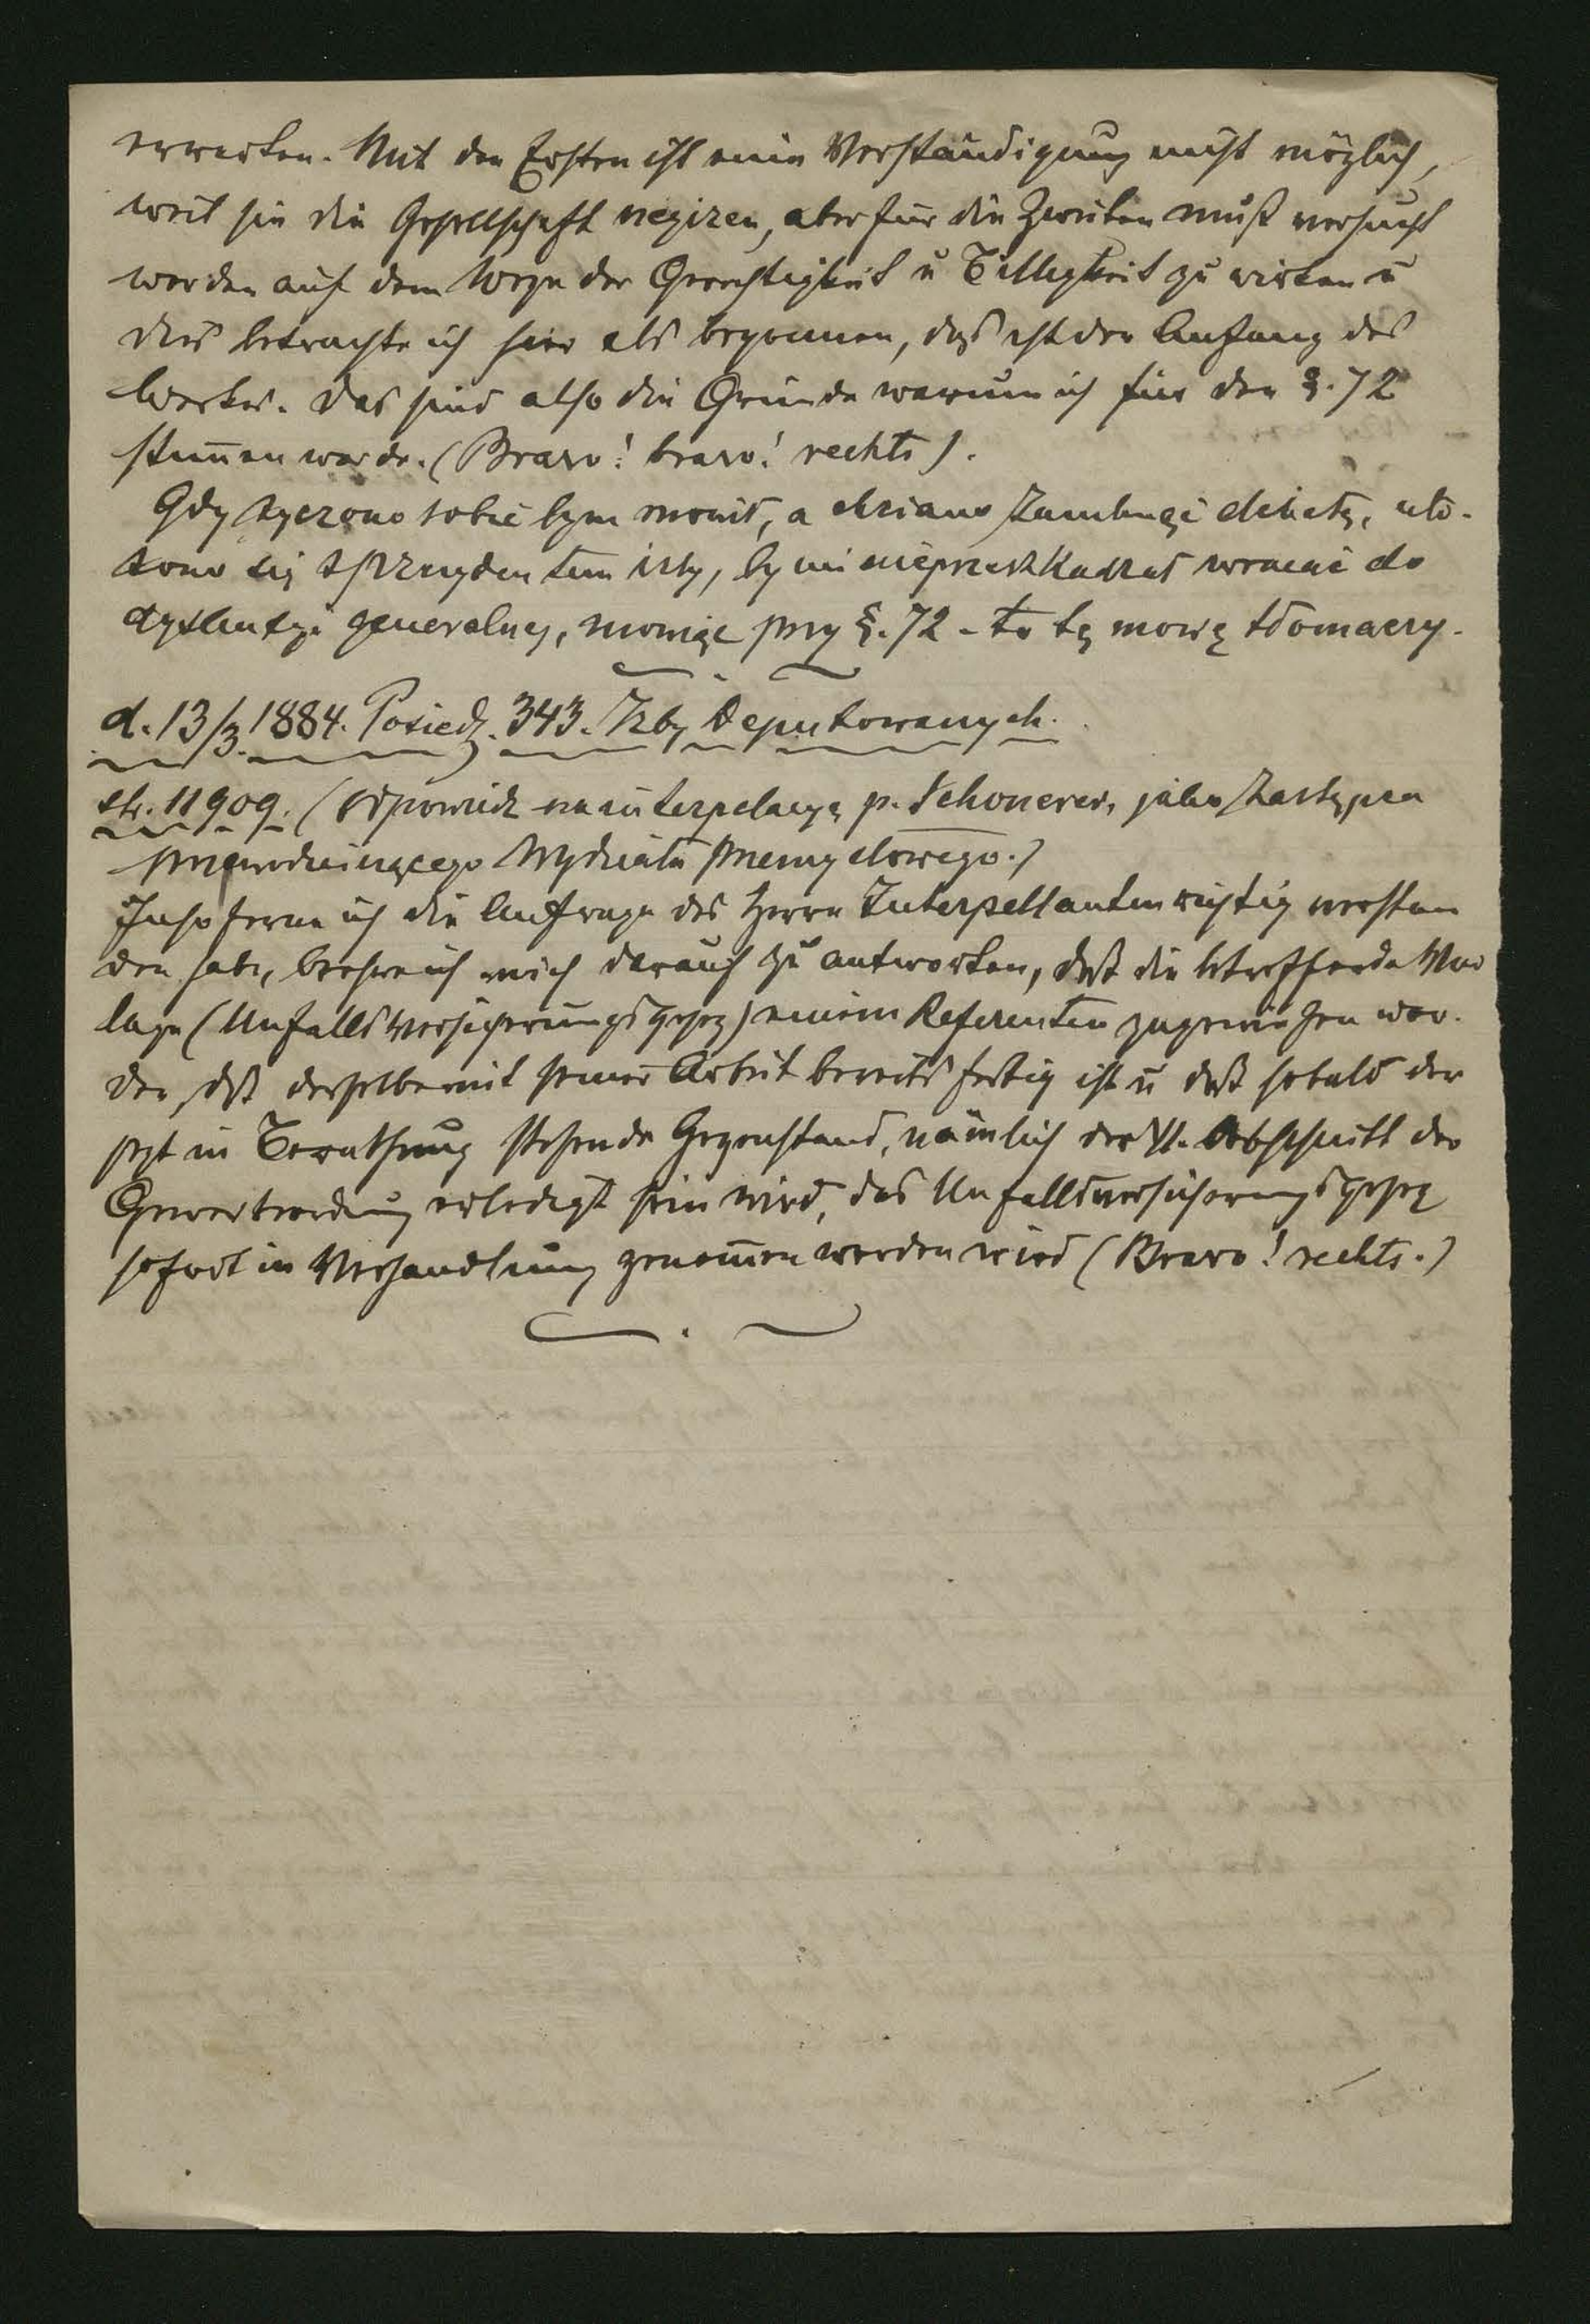 erwarten. Mit den Ersten ist eine Verständigung nicht möglich,
weil sie die Gesellschaft negiren, aber für die Zweiten muß versucht
werden auf dem Wege der Gerechtigkeit u Billigkeit zu wirken u
dies betrachte ich hier als begonnen, das ist der Anfang des
Werkes. Das sind also die Gründe warum ich für den §. 72
stim̅en werde. (Bravo! bravo! rechts).
Gdy życzono sobie bym mówił, a chciano zamknąć debatę, uło-
żono się z prezydentem izby, by mi nie przeszkadzał wracać do
dyskusyi generalnej, mówiąc przy §. 72 - to tę mowę tłomaczy.
d. 13/3. 1884. Posiedz. 343. Izby Deputowanych.
str. 11909. (Odpowiedź na interpelacyę p. Schönerer, jako zastępca
przewodniczącego Wydziału przemysłowego.)
Insoferne ich die Anfrage des Herrn Interpellanten richtig verstan
den habe, beehre ich mich darauf zu antworten, daß die betreffende Vor
lage (Unfallsversicherungsgesetz) einem Referenten zugewiesen wor-
den, daß derselbe mit seiner Arbeit bereits fertig ist u daß sobald der
jetzt in Berathung stehende Gegenstand, nämlich der VI. Abschnitt der
Gewerbeordnung erledigt sein wird, das Unfallsversicherungsgesetz
sofort in Verhandlung genom̅en werden wird (Bravo! rechts.)